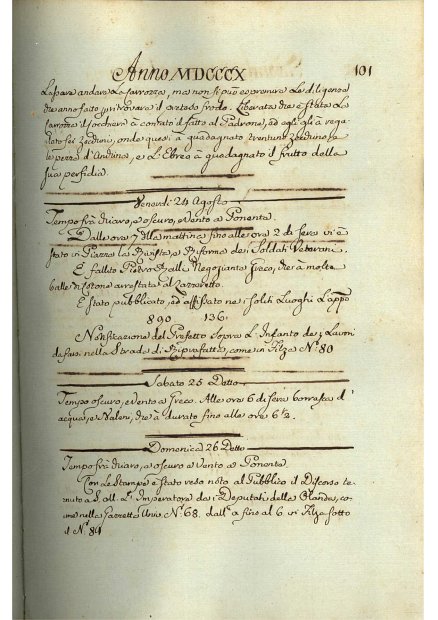 Anno MDCCCX 101
lasciare andare la Carrozza, ma non si può esprimere le diligenze
che anno fatto per trovare il creduto frodo. Liberata che è stata la
Carrozza il Cocchiere à contato il fatto al Padrone, ed egli gli à rega
lato sei Zecchini, onde questi à guadagnato trentuno Zecchino, e
le pezze d'Andrina, e l'Ebreo à guadagnato il frutto della
sua perfidia.
Venerdi 24 Agosto
Tempo frà chiaro, e oscuro, e Vento a Ponente.
Dalle ore 7 della mattina fino alle ore 2 da sera vi è
stato in Piazza la Rivista, e Riforma dei Soldati Veterani.
È fallito Pietro Ralli Negoziante Greco, che à molte
balle di Cotone arrestate al Lazzaretto.
È stato publicato, ed affissato ne i soliti Luoghi
890 136.
Notificazione del Prefetto sopra l'Incanto de i Lavori
da farsi nella Strada di come in Filza N.° 80
Sabato 25 Detto
Tempo oscuro, e Vento a Greco. Alle ore 6 di sera borrasca d'
acqua, e Baleni, che à durato fino alle ore 6½.
Domenica 26 Detto
Tempo frà chiaro, e oscuro e Vento a Ponente.
Con le Stampe è stato reso noto al Pubblico il Discorso te-
nuto a S. M. L'Imperatore dai Deputati della Olanda, co-
me nella Gazzetta Univ. N.° 68. dall' a fino al 6 vi Filza sotto
il N.° 81